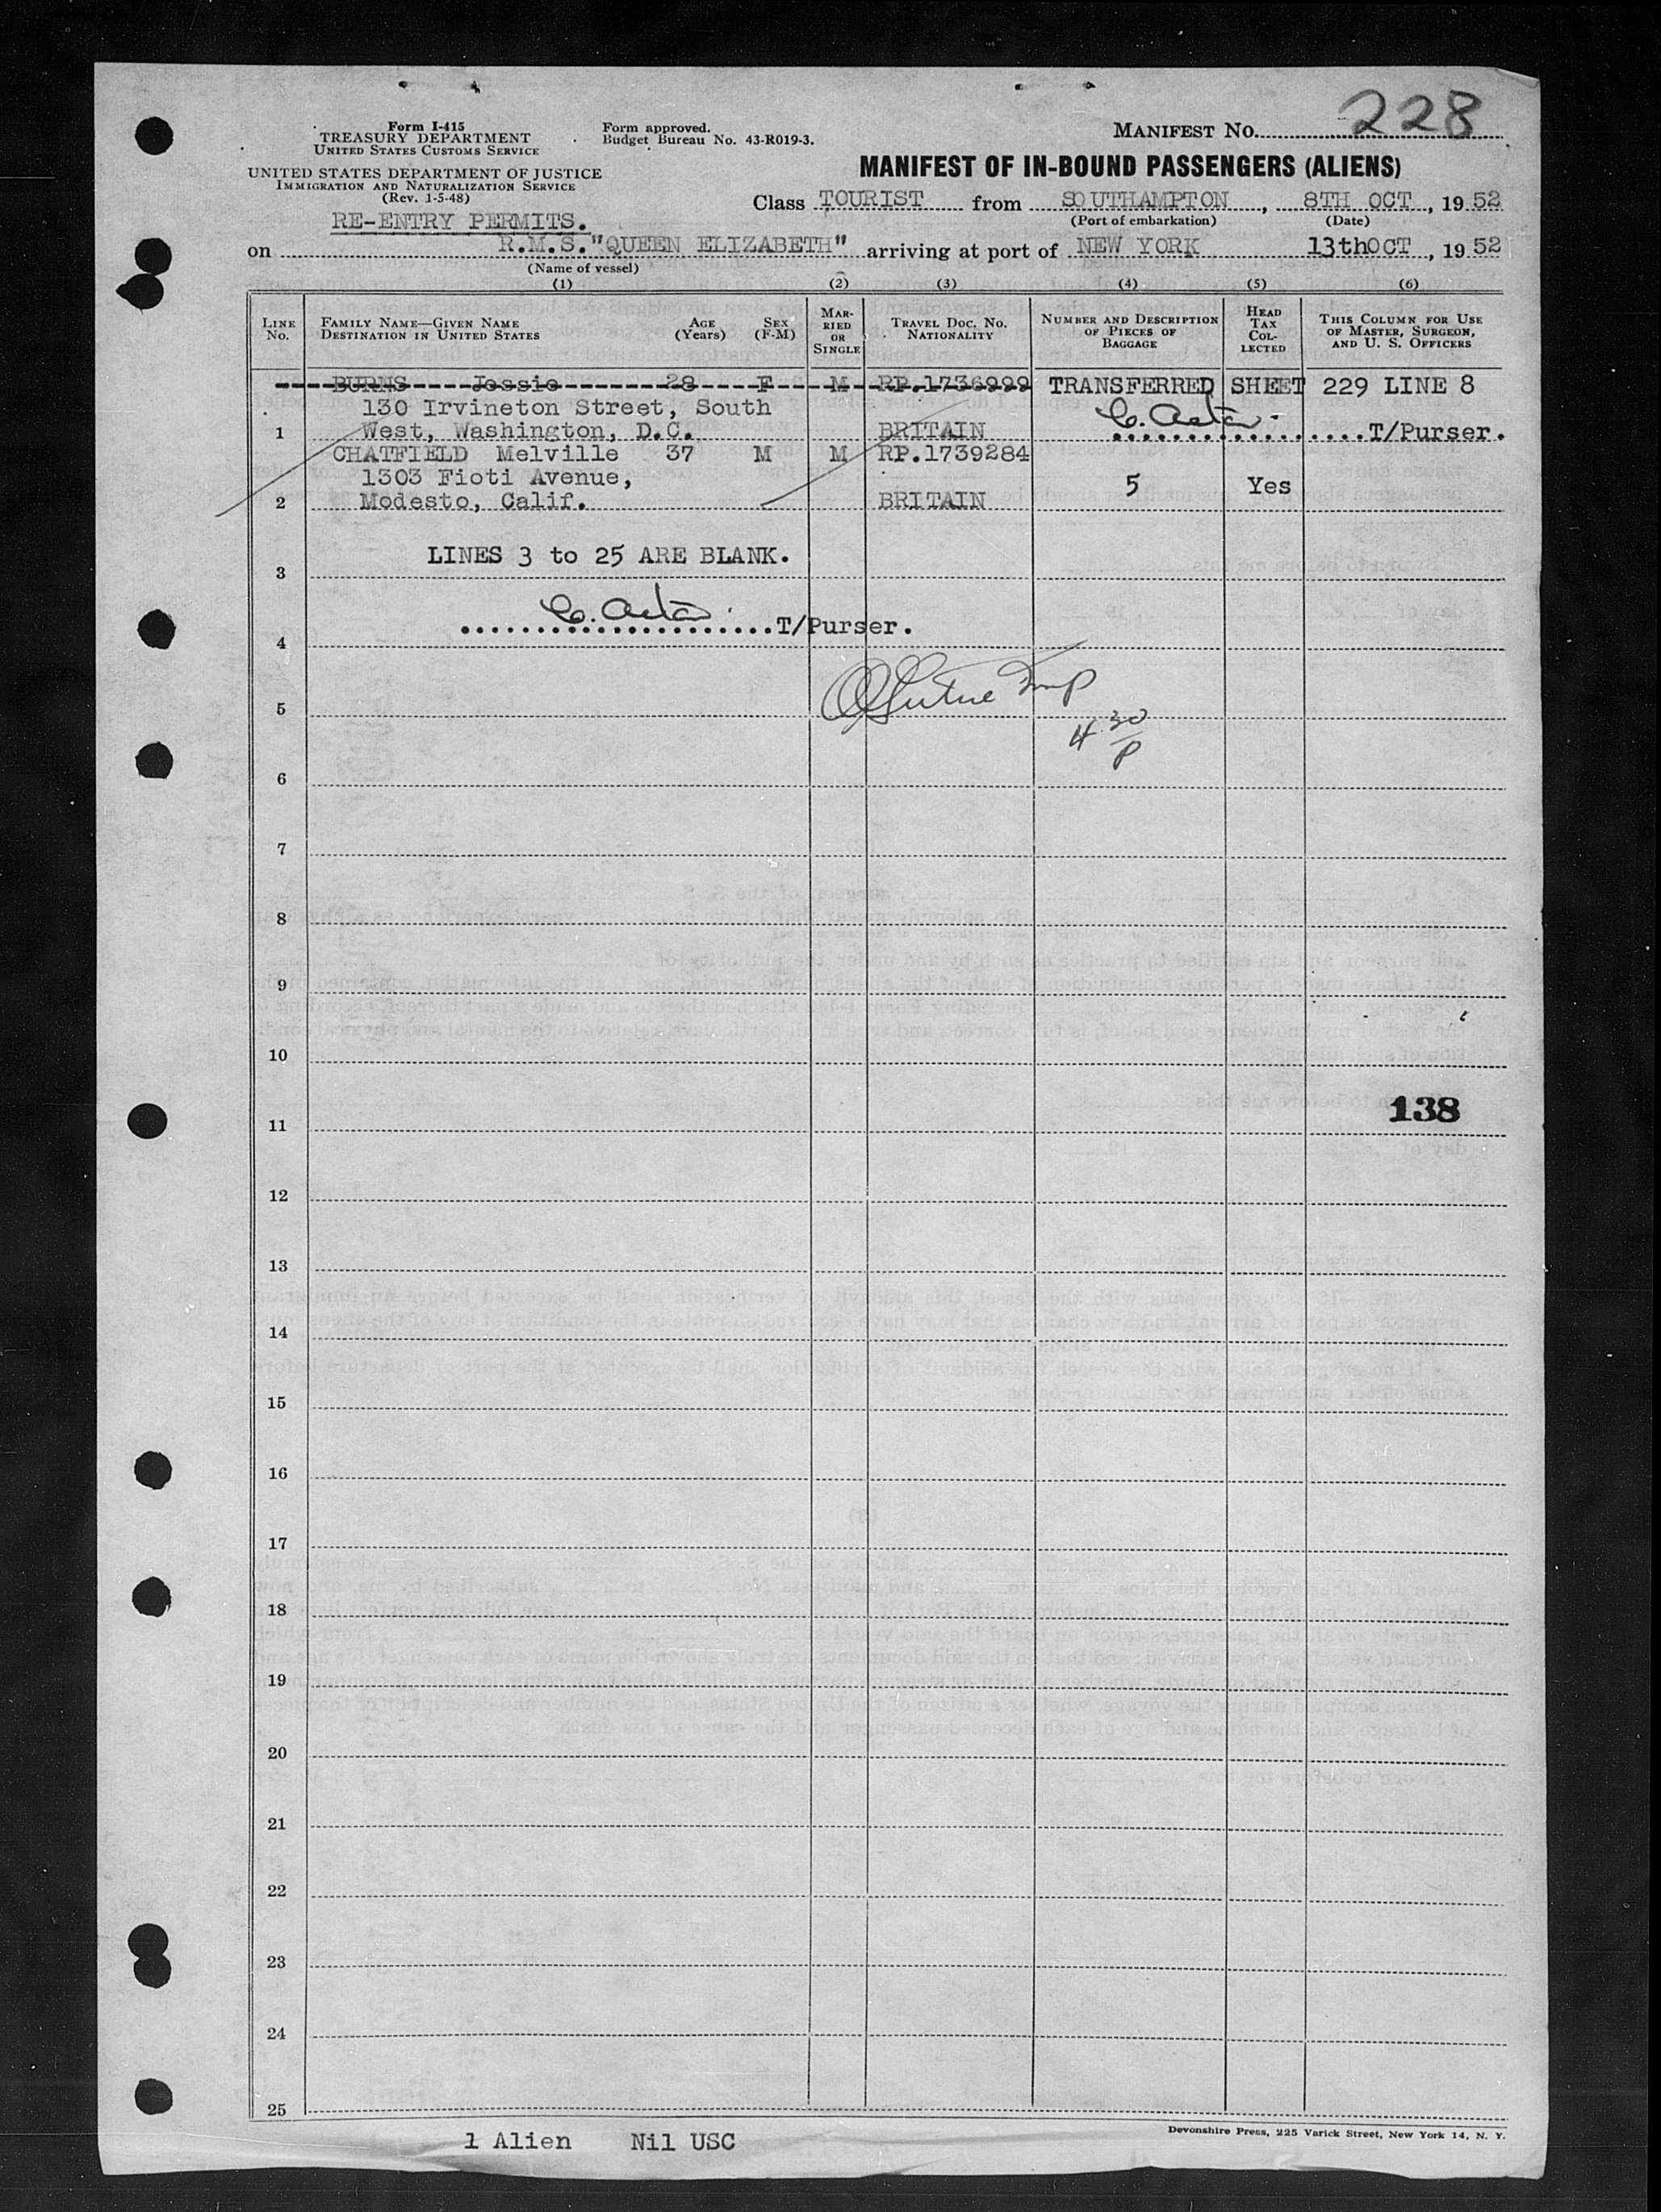 228
Form I-415
TREASURY DEPARTMENT
UNITED STATES CUSTOMS SERVICE
Form approved.
Budget Bureau No. 43-R019-3.
MANIFEST NO.
UNITED STATES DEPARTMENT OF JUSTICE
IMMIGRATION AND NATURALIZATION SERVICE
(Rev. 1-5-48)
MANIFEST OF IN-BOUND PASSENGERS (ALIENS)
Class TOURIST from SOUTHAMPTON, 8TH OCT, 1952
(Port of embarkation) (Date)
RE-ENTRY PERMITS.
on R.M.S."QUEEN ELIZABETH" arriving at port of NEW YORK 13thOCT, 1952
(Name of vessel)
(1) (2) (3) (4) (5) (6)
LINE No. FAMILY NAME—GIVEN NAME DESTINATION IN UNITED STATES AGE (Years) SEX (F-M) MARRIED OR SINGLE TRAVEL DOC. NO. NATIONALITY NUMBER AND DESCRIPTION OF PIECES OF BAGGAGE HEAD TAX COLLECTED THIS COLUMN FOR USE OF MASTER, SURGEON, AND U. S. OFFICERS
BURNS Jessie 28 F M RP.1736999 TRANSFERRED SHEET 229 LINE 8
130 Irvineton Street, South
1 West, Washington, D.C. BRITAIN T/Purser.
CHATFIELD Melville 37 M M RP.1739284
1303 Fioti Avenue, 5 Yes
2 Modesto, Calif. BRITAIN
LINES 3 to 25 ARE BLANK.
3
T/Purser.
4
5
4 30
P
6
7
8
9
10
138
11
12
13
14
15
16
17
18
19
20
21
22
23
24
25
1 Alien Nil USC
Devonshire Press, 225 Varick Street, New York 14, N. Y.